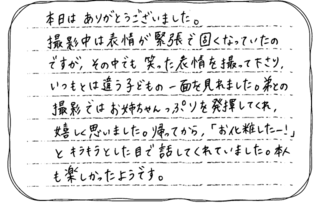 本日は ありがとうございました。
撮影中は表情が緊張で固くなっていたの
ですが、その中でも 笑った表情を撮って下さり、
いつもとは違う子どもの一面を見れました。弟との
撮影ではお姉ちゃんっぷりを発揮してくれ、
嬉しく思いました。帰ってから、「お化粧したー!」
と キラキラとした目で 話してくれていました。本人
も楽しかったようです。